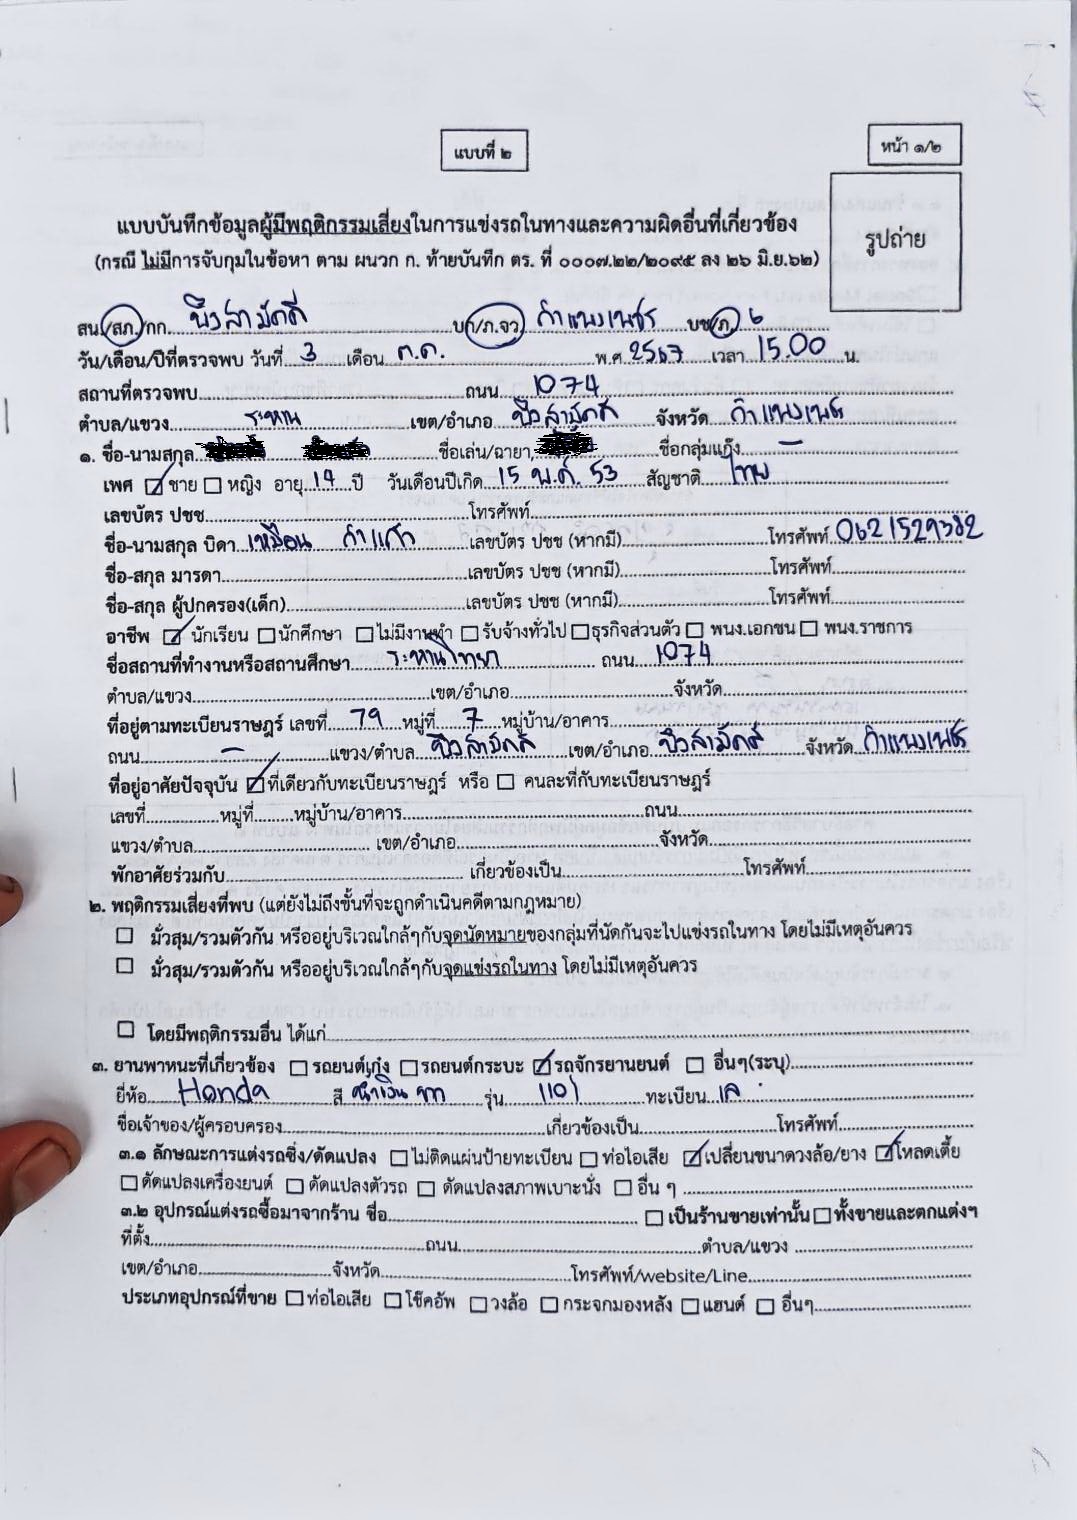 แบบที่ ๒
หน้า ๑/๒
รูปถ่าย
แบบบันทึกข้อมูลผู้มีพฤติกรรมเสี่ยงในการแข่งรถในทางและความผิดอื่นที่เกี่ยวข้อง
(กรณี ไม่มีการจับกุมในข้อหา ตาม ผนวก ก. ท้ายบันทึก ตร. ที่ ๐๐๐๗.๒๒/๒๐๙๕ ลง ๒๖ มิ.ย.๖๒)
สน./สภ./กก. บึงสามัคคี บก/ภ.จว. กำแพงเพชร บช/ภ. ๖
วัน/เดือน/ปีที่ตรวจพบ วันที่ 3 เดือน ต.ค. พ.ศ. 2567 เวลา 15.00 น.
สถานที่ตรวจพบ ถนน 1074
ตำบล/แขวง ระหาน เขต/อำเภอ บึงสามัคคี จังหวัด กำแพงเพชร
๑. ชื่อ-นามสกุล ชื่อเล่น/ฉายา ชื่อกลุ่มแก๊ง –
เพศ ชาย หญิง อายุ 14 ปี วันเดือนปีเกิด 15 พ.ค. 53 สัญชาติ ไทย
เลขบัตร ปชช. โทรศัพท์
ชื่อ-นามสกุล บิดา เหมือน เลขบัตร ปชช (หากมี) โทรศัพท์ 0621529382
ชื่อ-สกุล มารดา เลขบัตร ปชช (หากมี) โทรศัพท์
ชื่อ-สกุล ผู้ปกครอง(เด็ก) เลขบัตร ปชช (หากมี) โทรศัพท์
อาชีพ นักเรียน นักศึกษา ไม่มีงานทำ รับจ้างทั่วไป ธุรกิจส่วนตัว พนง.เอกชน พนง.ราชการ
ชื่อสถานที่ทำงานหรือสถานศึกษา ระหานวิทยา ถนน 1074
ตำบล/แขวง เขต/อำเภอ จังหวัด
ที่อยู่ตามทะเบียนราษฎร์ เลขที่ 79 หมู่ที่ 7 หมู่บ้าน/อาคาร
ถนน – แขวง/ตำบล บึงสามัคคี เขต/อำเภอ บึงสามัคคี จังหวัด กำแพงเพชร
ที่อยู่อาศัยปัจจุบัน ที่เดียวกับทะเบียนราษฎร์ หรือ คนละที่กับทะเบียนราษฎร์
เลขที่ หมู่ที่ หมู่บ้าน/อาคาร ถนน
แขวง/ตำบล เขต/อำเภอ จังหวัด
พักอาศัยร่วมกับ เกี่ยวข้องเป็น โทรศัพท์
๒. พฤติกรรมเสี่ยงที่พบ (แต่ยังไม่ถึงขั้นที่จะถูกดำเนินคดีตามกฎหมาย)
มั่วสุม/รวมตัวกัน หรืออยู่บริเวณใกล้ๆกับจุดนัดหมายของกลุ่มที่นัดกันจะไปแข่งรถในทาง โดยไม่มีเหตุอันควร
มั่วสุม/รวมตัวกัน หรืออยู่บริเวณใกล้ๆกับจุดแข่งรถในทาง โดยไม่มีเหตุอันควร
โดยมีพฤติกรรมอื่น ได้แก่
๓. ยานพาหนะที่เกี่ยวข้อง รถยนต์เก๋ง รถยนต์กระบะ รถจักรยานยนต์ อื่นๆ(ระบุ)
ยี่ห้อ Honda สี น้ำเงิน รุ่น 110i ทะเบียน
ชื่อเจ้าของ/ผู้ครอบครอง เกี่ยวข้องเป็น โทรศัพท์
๓.๑ ลักษณะการแต่งรถซิ่ง/ดัดแปลง ไม่ติดแผ่นป้ายทะเบียน ท่อไอเสีย เปลี่ยนขนาดวงล้อ/ยาง โหลดเตี้ย
ดัดแปลงเครื่องยนต์ ดัดแปลงตัวรถ ดัดแปลงสภาพเบาะนั่ง อื่น ๆ
๓.๒ อุปกรณ์แต่งรถซื้อมาจากร้าน ชื่อ เป็นร้านขายเท่านั้น ทั้งขายและตกแต่งฯ
ที่ตั้ง ถนน ตำบล/แขวง
เขต/อำเภอ จังหวัด โทรศัพท์/website/Line
ประเภทอุปกรณ์ที่ขาย ท่อไอเสีย โช๊คอัพ วงล้อ กระจกมองหลัง แฮนด์ อื่นๆ